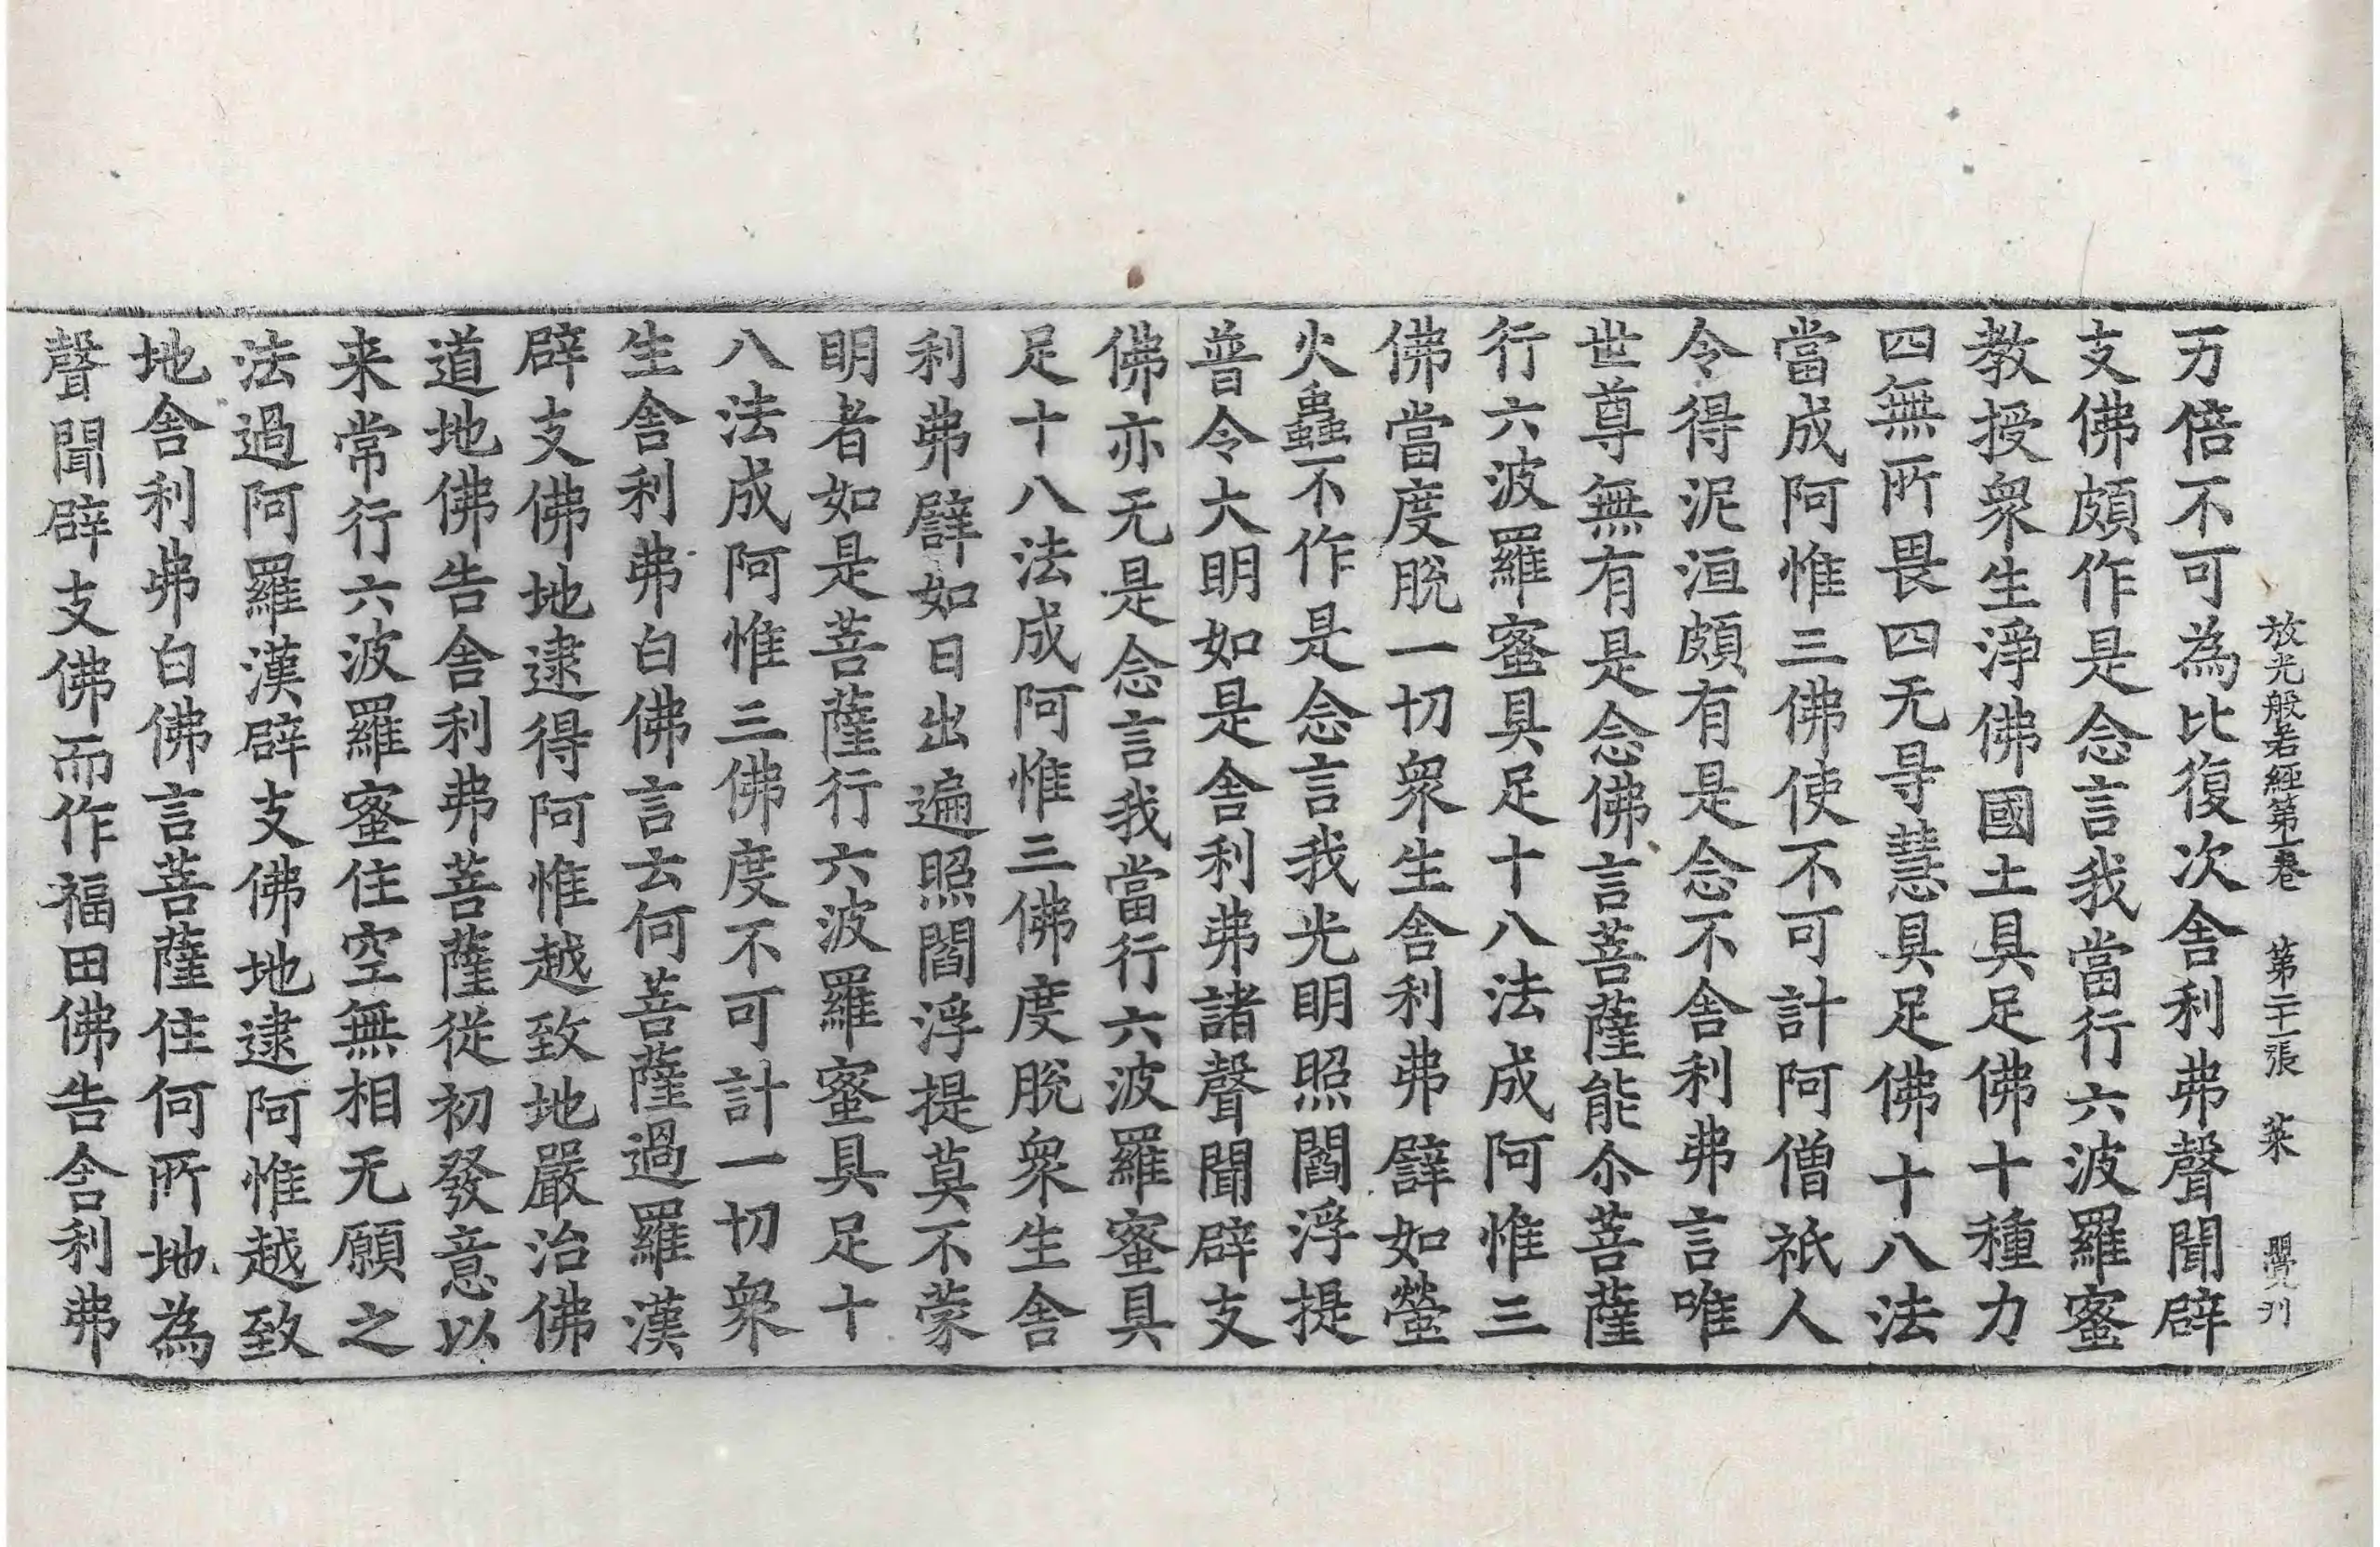 放光般若經第一卷 第二十一張 菜 覺刊
万倍不可為比復次舍利弗聲聞辟
支佛頗作是念言我當行六波羅蜜
教授衆生淨佛國土具足佛十種力
四無所畏四无㝵慧具足佛十八法
當成阿惟三佛使不可計阿僧祇人
令得泥洹頗有是念不舍利弗言唯
世尊無有是念佛言菩薩能尒菩薩
行六波羅蜜具足十八法成阿惟三
佛當度脫一切衆生舍利弗譬如螢
火蟲不作是念言我光明照閻浮提
普令大明如是舍利弗諸聲聞辟支
佛亦无是念言我當行六波羅蜜具
足十八法成阿惟三佛度脫衆生舍
利弗譬如日出遍照閻浮提莫不蒙
明者如是菩薩行六波羅蜜具足十
八法成阿惟三佛度不可計一切衆
生舍利弗白佛言云何菩薩過羅漢
辟支佛地逮得阿惟越致地嚴治佛
道地佛告舍利弗菩薩從初發意以
来常行六波羅蜜住空無相无願之
法過阿羅漢辟支佛地逮阿惟越致
地舍利弗白佛言菩薩住何所地為
聲聞辟支佛而作福田佛告舍利弗